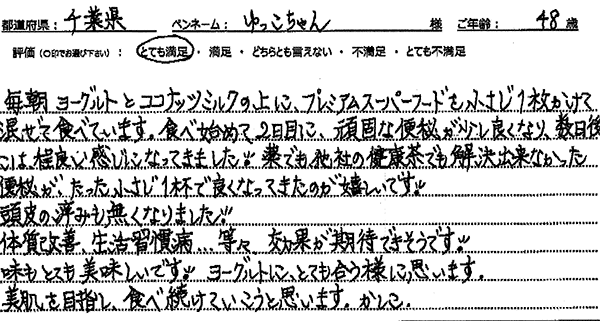 都道府県： 千葉県 ペンネーム： ゆっこちゃん 様 ご年齢： 48 歳
評価（○印でお選び下さい）： とても満足 ・ 満足 ・ どちらとも言えない ・ 不満足 ・ とても不満足
毎朝 ヨーグルトとココナッツミルクの上に、プレミアムスーパーフードを小さじ1杯かけて
混ぜて食べています。食べ始めて2日目に、頑固な便秘が少し良くなり、数日後
には、程良い感じになってきました!! 薬でも他社の健康茶でも解決出来なかった
便秘が、たった小さじ1杯で良くなってきたのが嬉しいです!!
頭皮の痒みも無くなりました!!
体質改善、生活習慣病...等々 効果が期待できそうです!!
味もとても美味しいです!! ヨーグルトに、とても合う様に思います。
美肌を目指し、食べ続けていこうと思います。かしこ。